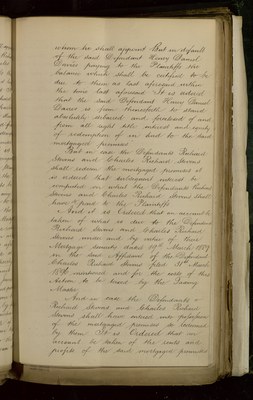 whom he shall appoint But in default
of the said Defendant Henry Daniel
Davies paying to the Plaintiffs the
balance which shall be certified to be
due to them as last aforesaid within
the time last aforesaid It is ordered
that the said Defendant Henry Daniel
Davies do from thenceforth stand
absolutely debarred and foreclosed of and
from all right title interest and equity
of redemption of in and to the said
mortgaged premises
But in case the Defendants Richard
Stevens and Charles Richard Stevens
shall redeem the mortgaged premises it
is ordered that subsequent interest be
computed on what the Defendants Richard
Stevens and Charles Richard Stevens shall
have paid to the Plaintiffs
And it is Ordered that an account
taken of what is due to the Defendants
Richard Stevens and Charles Richard
Stevens under and by virtue of their
Mortgage Security dated March
in the said Affidavit of the Defendant
Charles Richard Stevens filed
mentioned and for the costs of this
Action to be taxed by the Taxing
Master
And in case the Defendants
Richard Stevens and Charles Richard
Stevens shall have entered into possession
of the mortgaged premises so redeemed
by them It is Ordered that an
account be taken of the rents and
profits of the said mortgaged premises